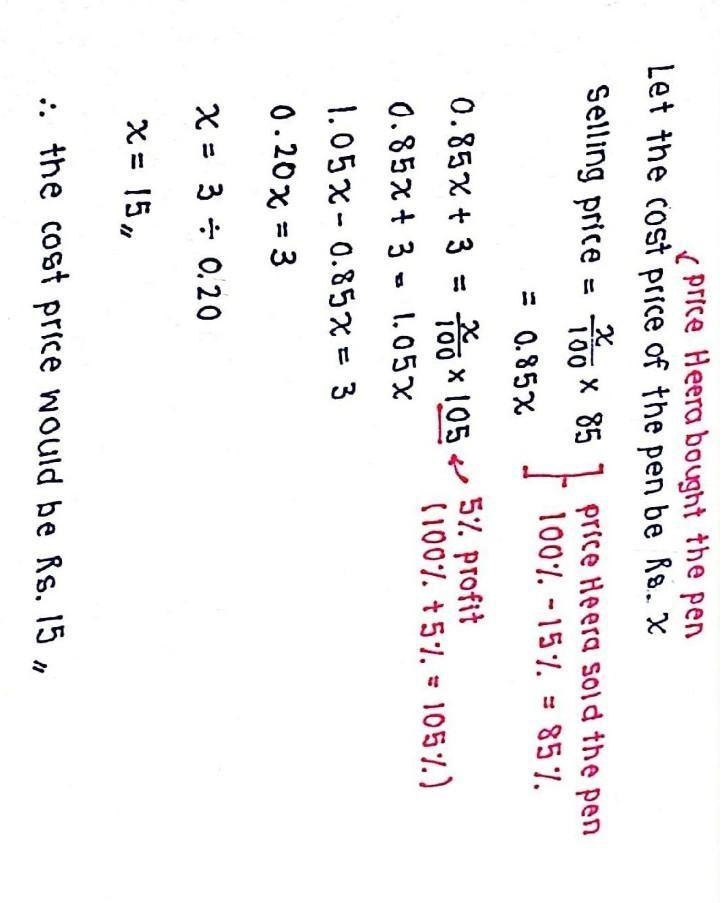 ✓ price Heera bought the pen
Let the cost price of the pen be Rs. x
Selling price = x/100 × 85 } price Heera sold the pen
= 0.85x 100% - 15% = 85%.
0.85x + 3 = x/100 × 105 ↙ 5% profit
0.85x + 3 = 1.05x (100% + 5% = 105%)
1.05x - 0.85x = 3
0.20x = 3
x = 3 ÷ 0.20
x = 15 〃
∴ the cost price would be Rs. 15 〃